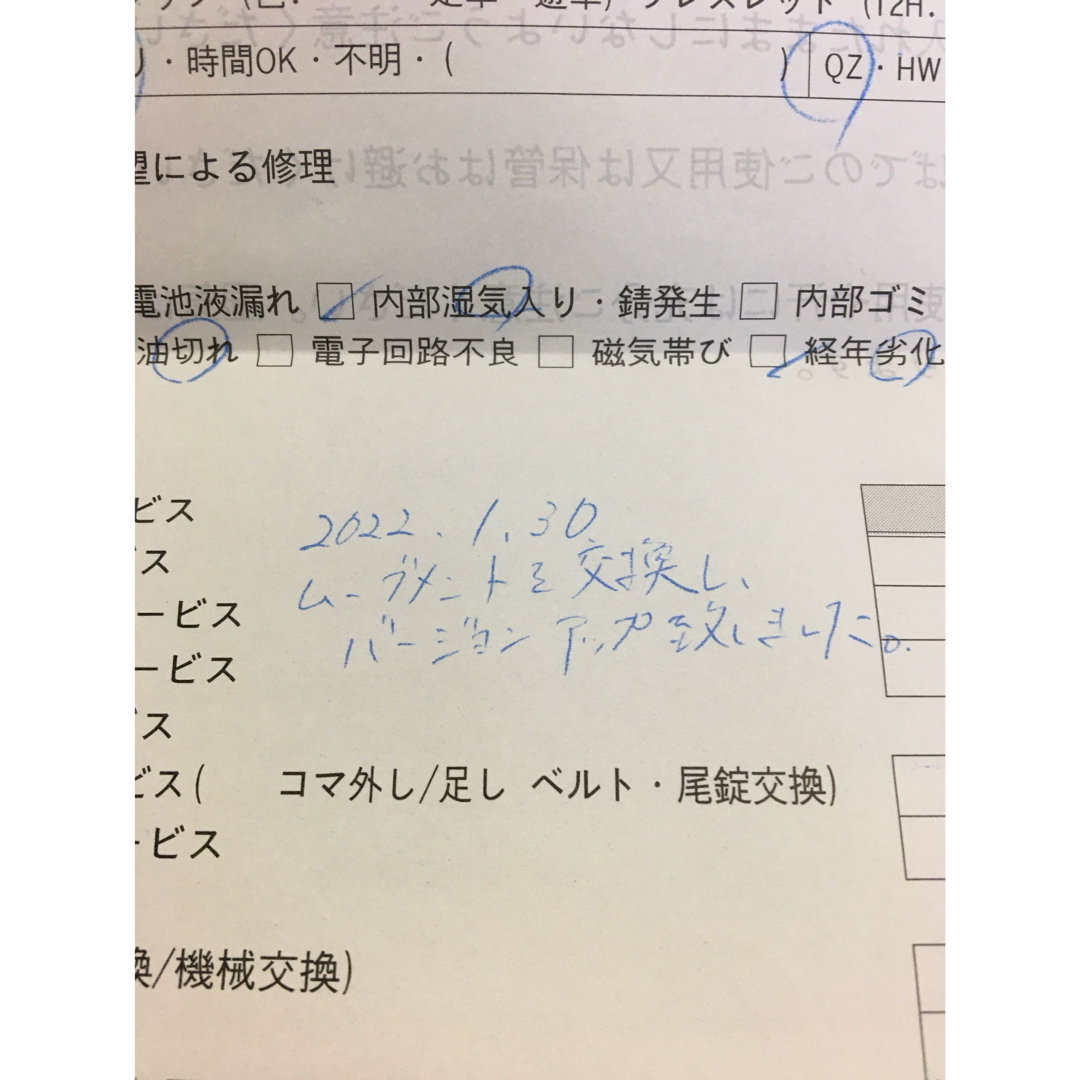 ・時間OK・不明・(　　　) QZ・HW
望による修理
電池液漏れ □ 内部湿気入り・錆発生 □ 内部ゴミ
油切れ □ 電子回路不良 □ 磁気帯び □ 経年劣化
ビス
2022.1.30
ス
ムーブメントを交換し、
ービス
バージョンアップ致しました。
ービス
ス
ビス(　　コマ外し/足し ベルト・尾錠交換)
ービス
換/機械交換)